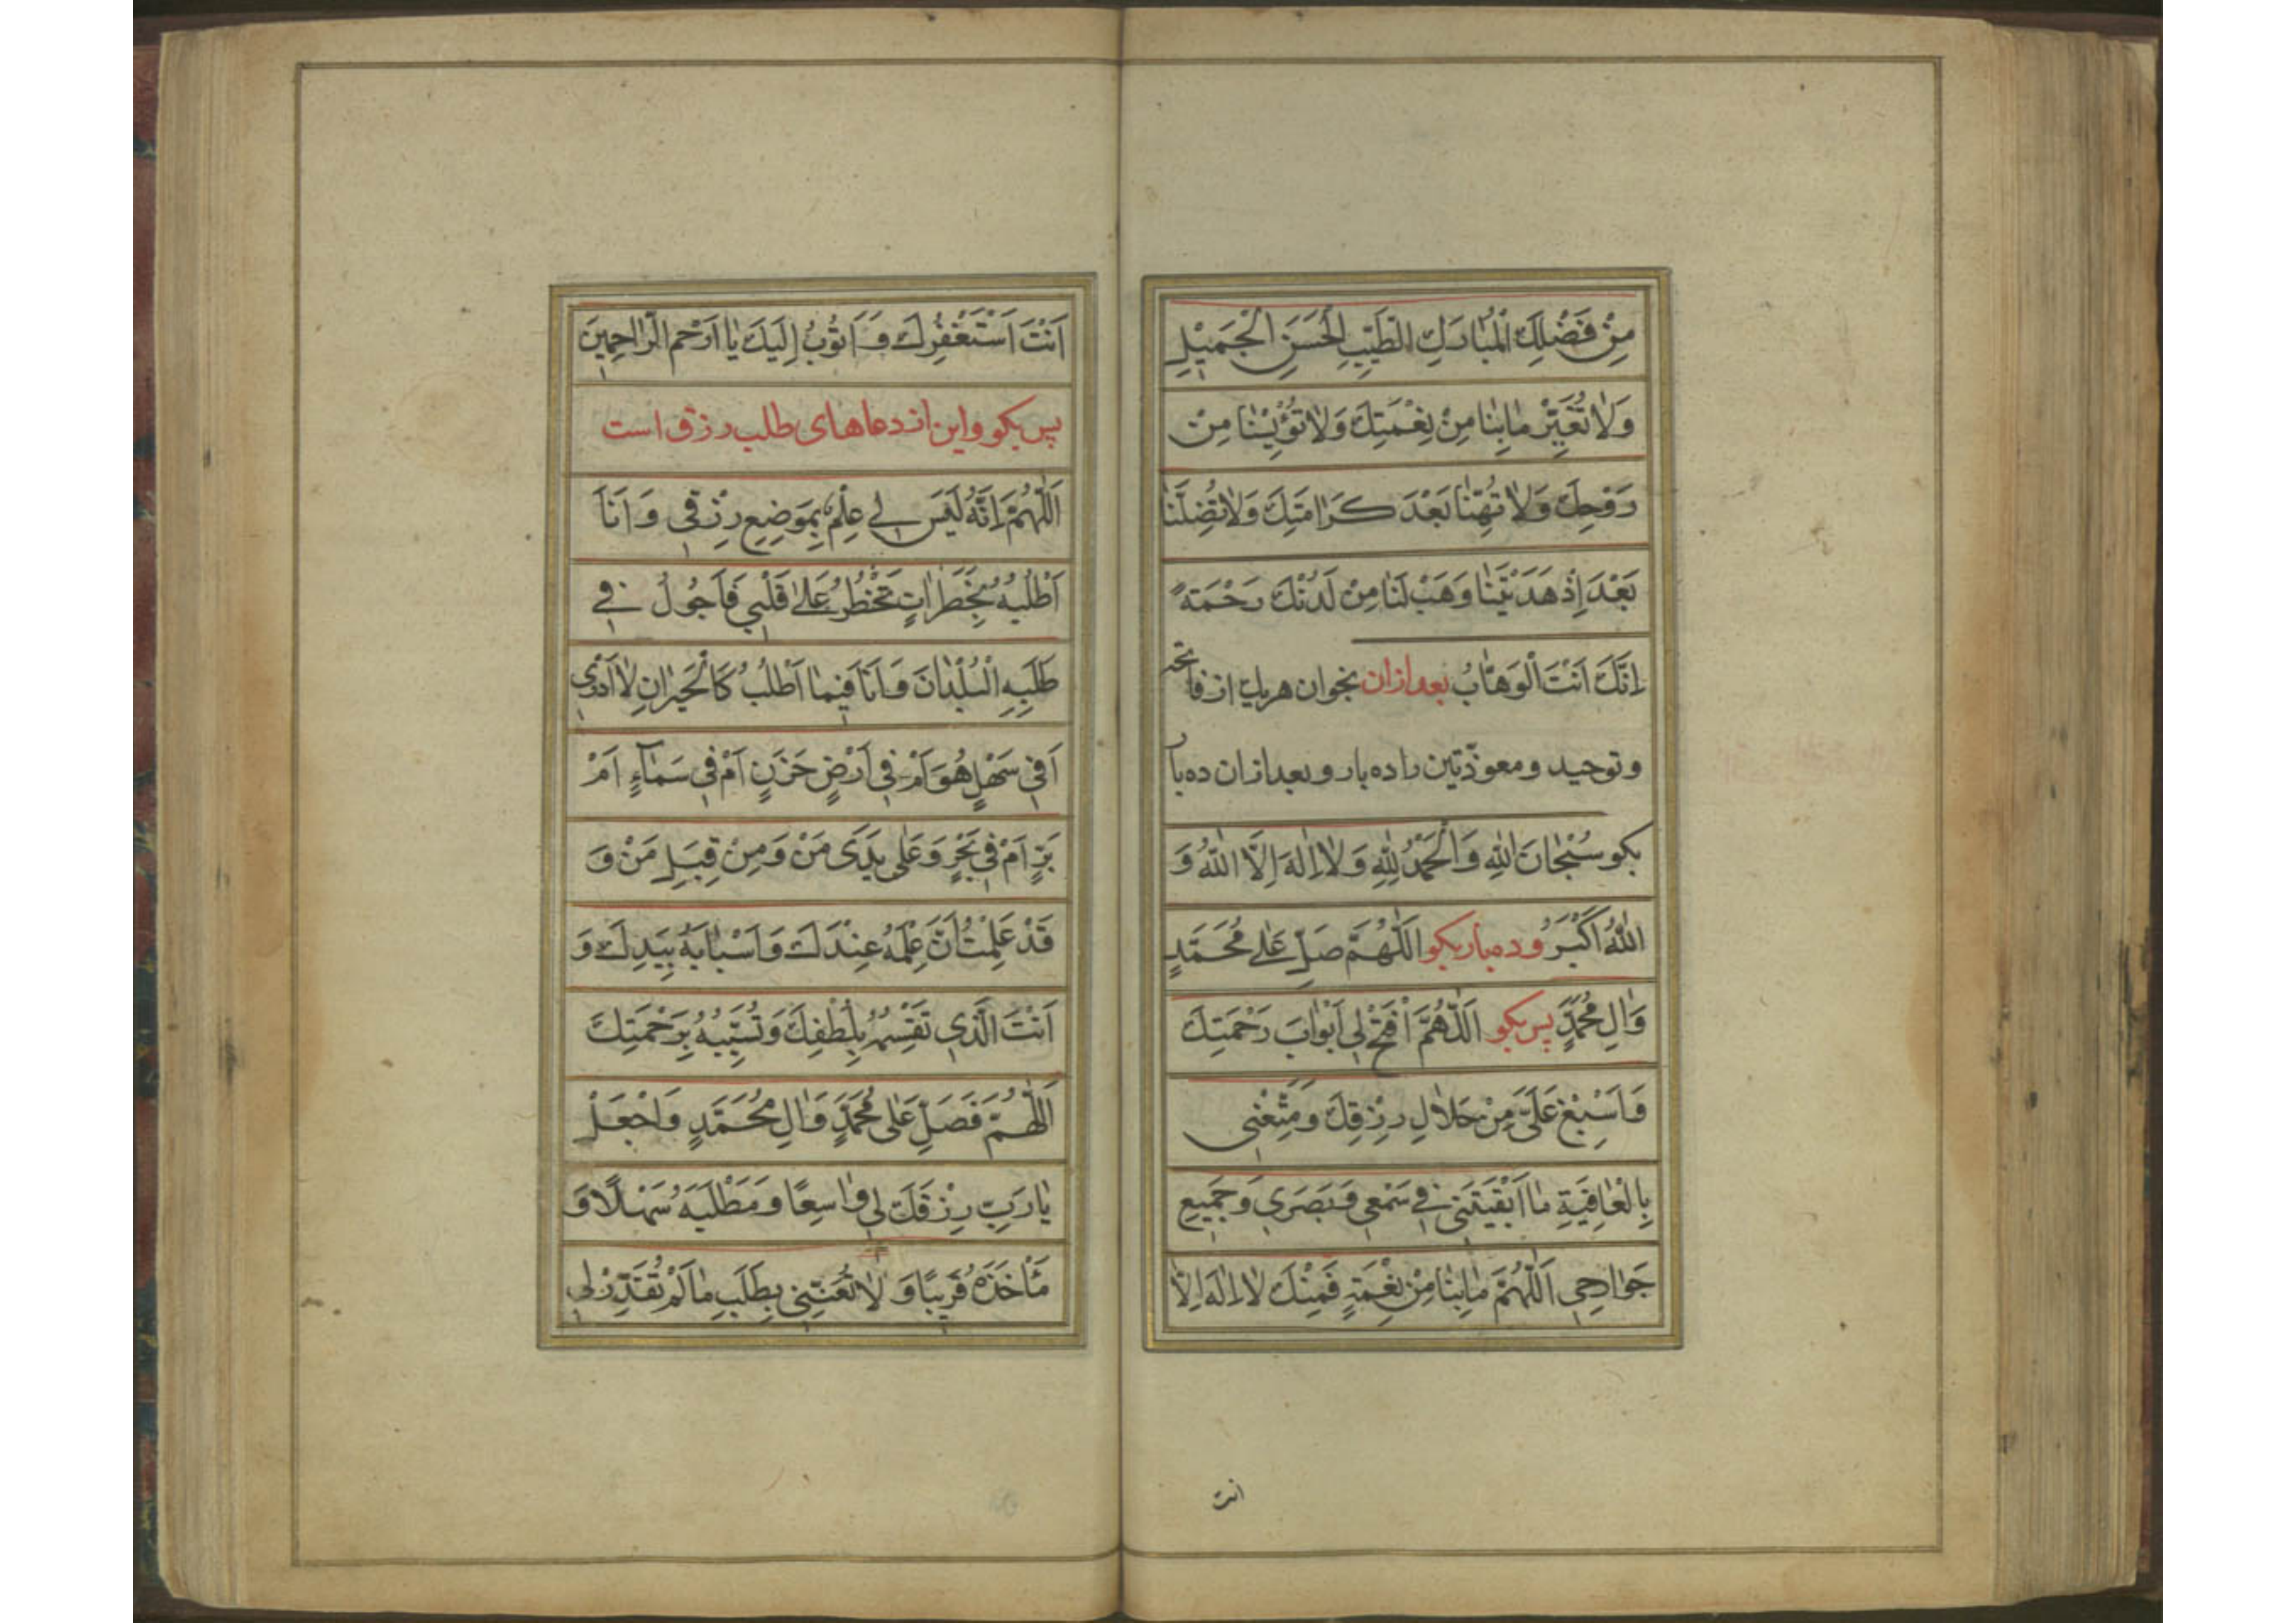 مِنْ فَضْلِكَ الْمُبَارَكِ الطَّيِّبِ الْحَسَنِ الْجَمِيْلِ
وَلَا تُغَيِّرْ مَا بِنَا مِنْ نِعْمَتِكَ وَلَا تُؤْيِسْنَا مِنْ
رَوْحِكَ وَلَا تُهِنَّا بَعْدَ كَرَامَتِكَ وَلَا تُضِلَّنَا
بَعْدَ اِذْ هَدَيْتَنَا وَهَبْ لَنَا مِنْ لَدُنْكَ رَحْمَةً
اِنَّكَ اَنْتَ الْوَهَّابُ بعد ازان بخوان هریك از فاتحه
و توحید و معوّذتین را ده بار و بعد ازان ده بار
بکو سُبْحَانَ اللهِ وَالْحَمْدُ لِلّٰهِ وَلَا اِلٰهَ اِلَّا اللهُ وَ
اللهُ اَكْبَرُ و ده بار بکو اَللّٰهُمَّ صَلِّ عَلٰى مُحَمَّدٍ
وَاٰلِ مُحَمَّدٍ پس بکو اَللّٰهُمَّ افْتَحْ لِي اَبْوَابَ رَحْمَتِكَ
وَاَسْبِغْ عَلَيَّ مِنْ حَلَالِ رِزْقِكَ وَمَتِّعْنِي
بِالْعَافِيَةِ مَا اَبْقَيْتَنِي فِي سَمْعِي وَبَصَرِي وَجَمِيعِ
جَوَارِحِي اَللّٰهُمَّ مَا بِنَا مِنْ نِعْمَةٍ فَمِنْكَ لَا اِلٰهَ اِلَّا
انت
اَنْتَ اَسْتَغْفِرُكَ وَاَتُوْبُ اِلَيْكَ يَا اَرْحَمَ الرَّاحِمِينَ
پس بکو و این از دعاهای طلب رزق است
اَللّٰهُمَّ اِنَّهُ لَيْسَ لِي عِلْمٌ بِمَوْضِعِ رِزْقِي وَاَنَا
اَطْلُبُهُ بِخَطَرَاتٍ تَخْطُرُ عَلٰى قَلْبِي فَاَجُولُ فِي
طَلَبِهِ الْبُلْدَانَ وَاَنَا فِيمَا اَطْلُبُ كَالْحَيْرَانِ لَا اَدْرِي
اَفِي سَهْلٍ هُوَ اَمْ فِي اَرْضٍ حَزَنٍ اَمْ فِي سَمَاءٍ اَمْ
بَرٍّ اَمْ فِي بَحْرٍ وَعَلٰى يَدَيْ مَنْ وَمِنْ قِبَلِ مَنْ وَ
قَدْ عَلِمْتُ اَنَّ عِلْمَهُ عِنْدَكَ وَاَسْبَابَهُ بِيَدِكَ وَ
اَنْتَ الَّذِي تَقْسِمُهُ بِلُطْفِكَ وَتُسَبِّبُهُ بِرَحْمَتِكَ
اَللّٰهُمَّ فَصَلِّ عَلٰى مُحَمَّدٍ وَاٰلِ مُحَمَّدٍ وَاجْعَلْ
يَا رَبِّ رِزْقَكَ لِي وَاسِعًا وَمَطْلَبَهُ سَهْلًا وَ
مَأْخَذَهُ قَرِيبًا وَ لَا تُعَنِّنِي بِطَلَبِ مَا لَمْ تُقَدِّرْ لِي